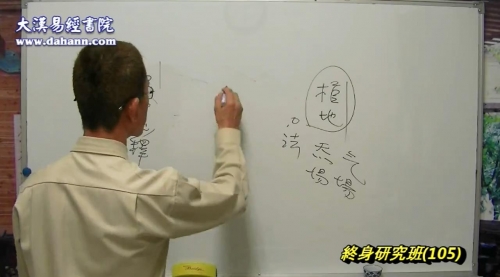 大漢易經書院
www.dahann.com
地
气場
炁場
法
擇
終身研究班(105)